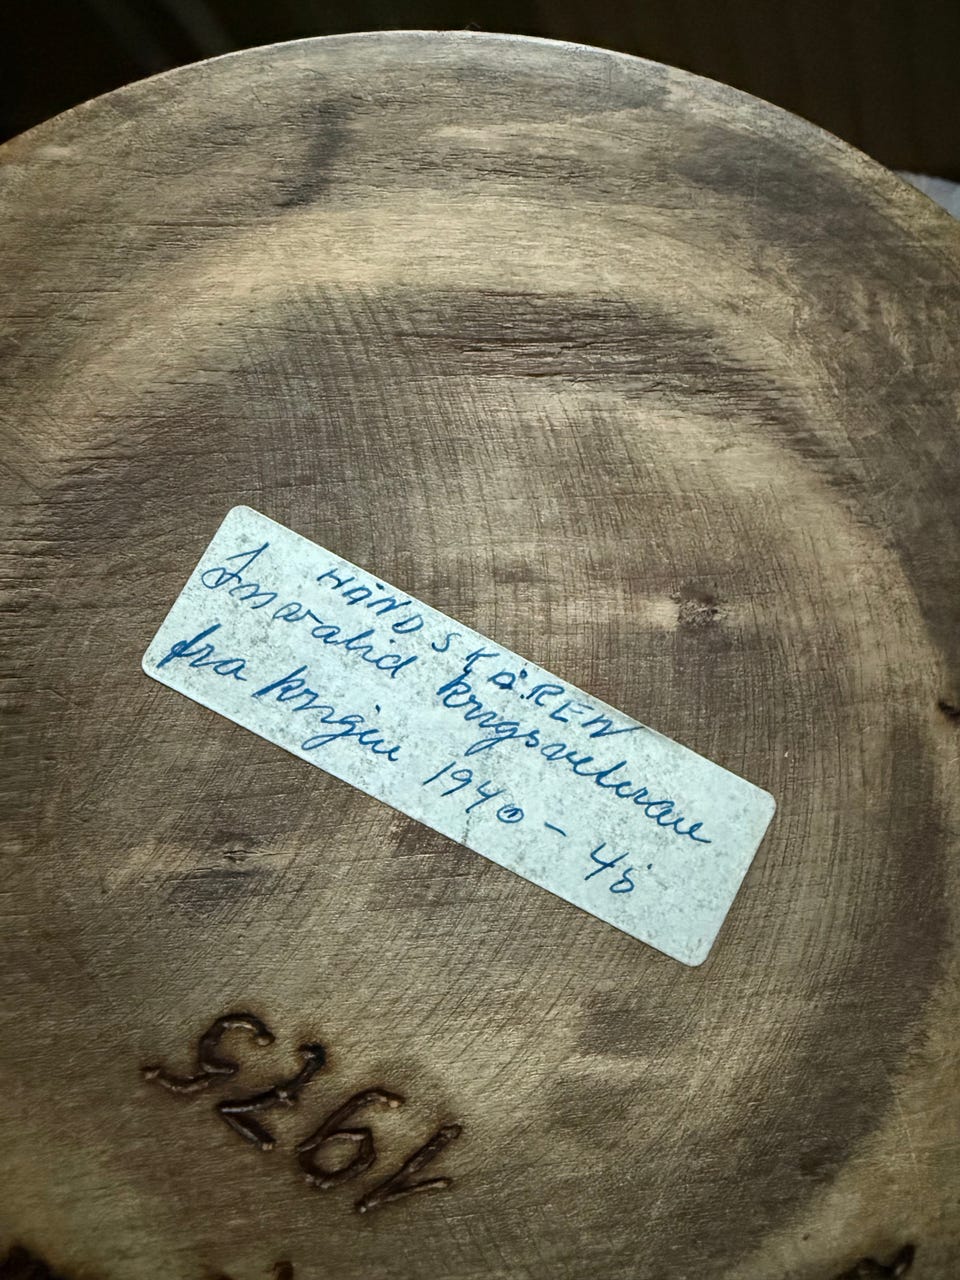 HÄNDSKÄREN
Invalid krigsveteran
fra krigen 1940 - 45
1975